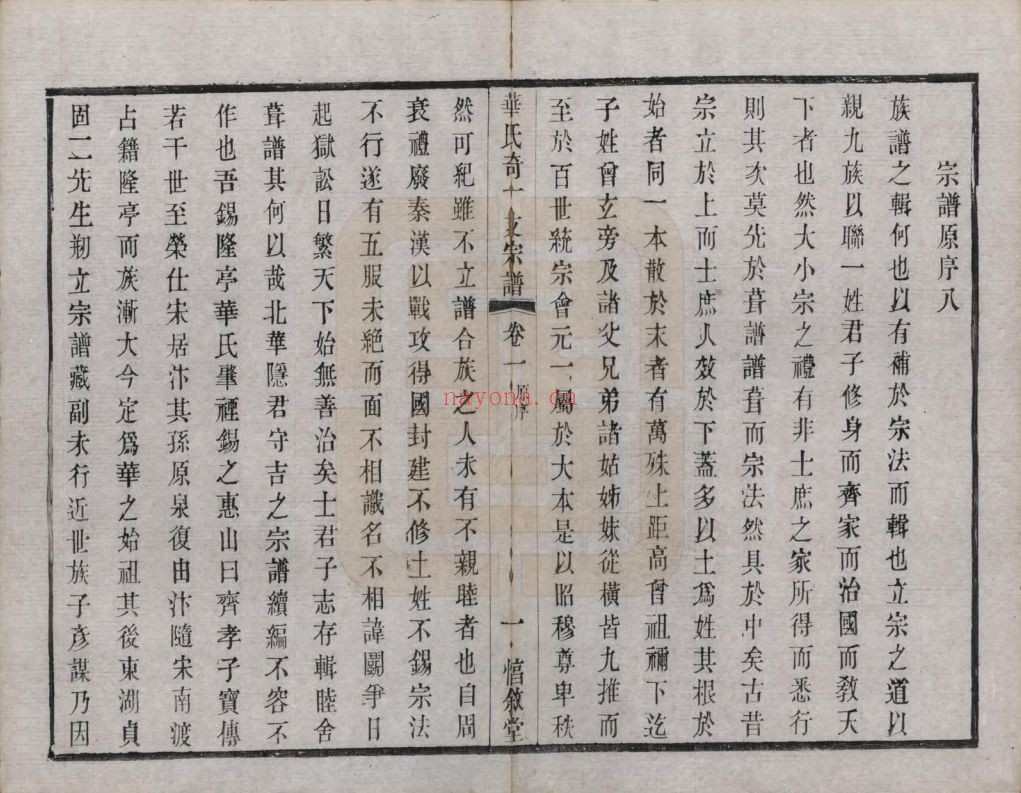 宗譜原序八
族譜之輯何也以有補於宗法而輯也立宗之道以
親九族以聯一姓君子修身而齊家而治國而教天
下者也然大小宗之禮有非士庶之家所得而悉行
則其次莫先於葺譜譜葺而宗法然具於中矣古昔
宗立於上而士庶人效於下蓋多以土爲姓其根於
始者同一本散於末者有萬殊上距高曾祖禰下迄
子姓曾玄旁及諸父兄弟諸姑姊妹從橫皆九推而
至於百世統宗會元一屬於大本是以昭穆尊卑秩
華氏奇一支宗譜 卷一 原序 一 惇敘堂
然可紀雖不立譜合族之人未有不親睦者也自周
衰禮廢秦漢以戰攻得國封建不修土姓不錫宗法
不行遂有五服未絶而面不相識名不相諱鬬爭日
起獄訟日繁天下始無善治矣士君子志存輯睦舍
葺譜其何以哉北華隱君守吉之宗譜續編不容不
作也吾錫隆亭華氏肇禋錫之惠山曰齊孝子寶傳
若干世至榮仕宋居汴其孫原泉復由汴隨宋南渡
占籍隆亭而族漸大今定爲華之始祖其後東湖貞
固二先生剏立宗譜藏副未行近世族子彥謀乃因
nayona.cn